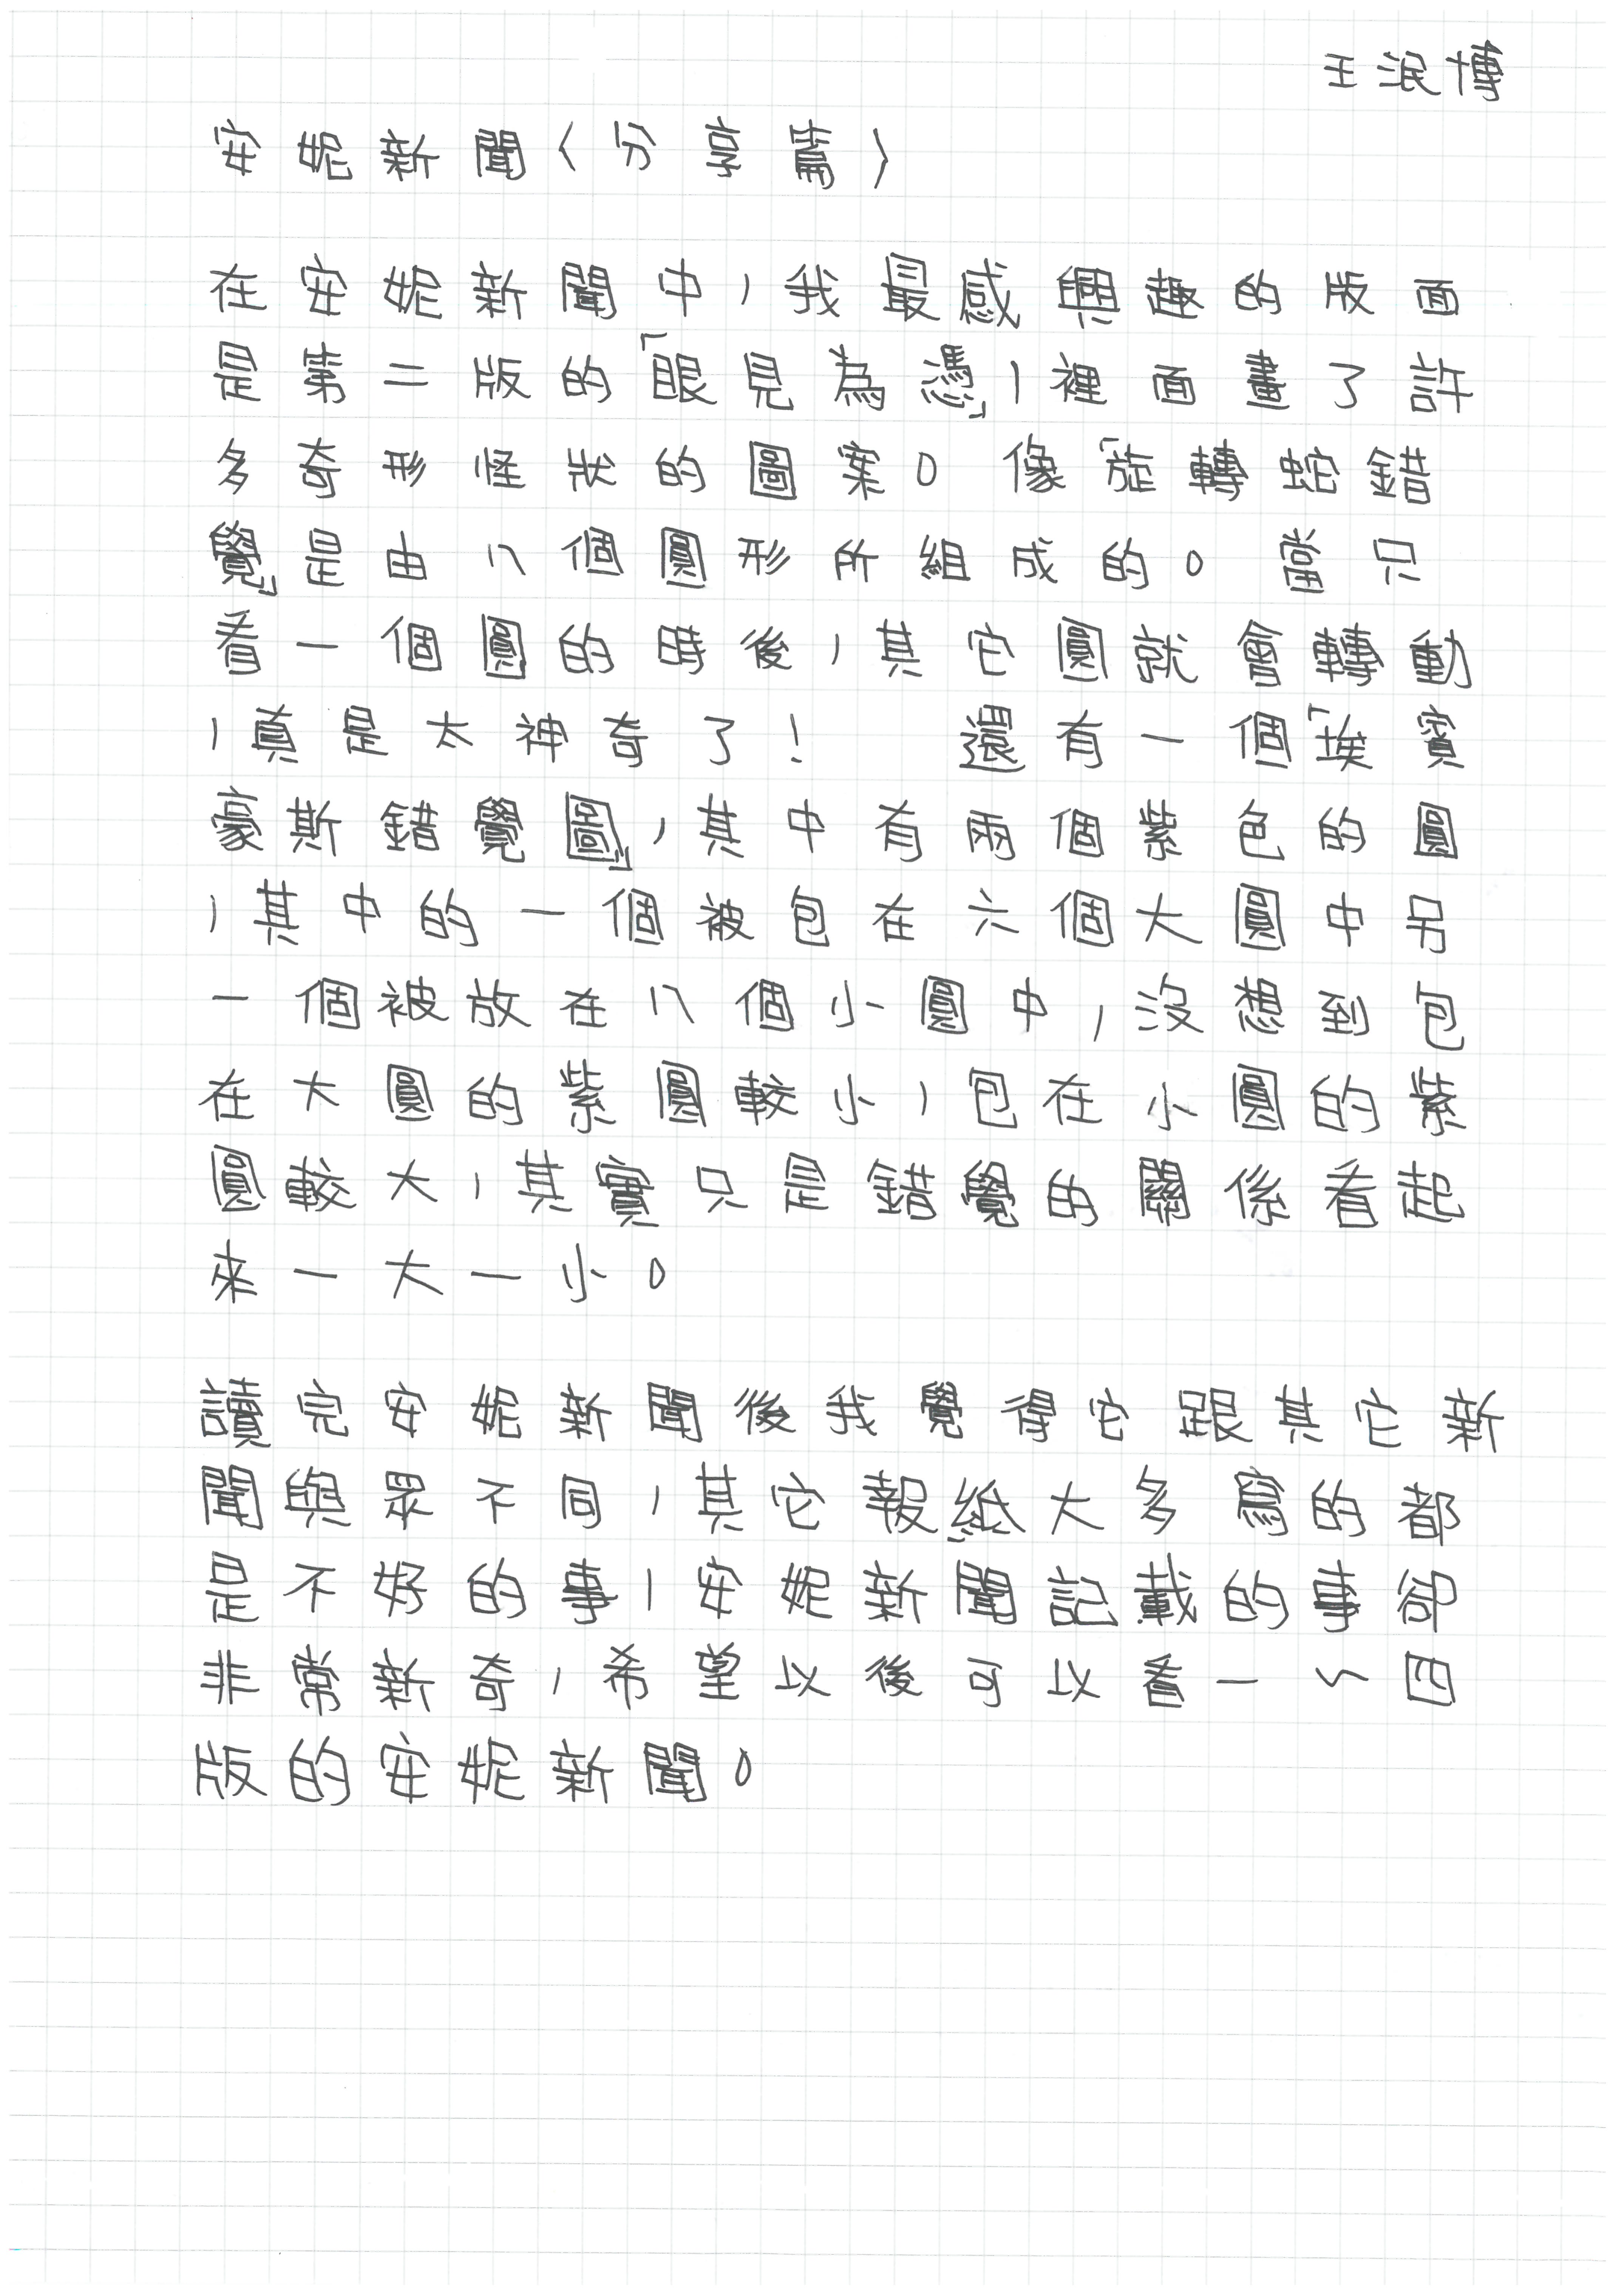 王泯博
安妮新聞〈分享篇〉
在安妮新聞中,我最感興趣的版面
是第二版的「眼見為憑」,裡面畫了許
多奇形怪狀的圖案。像「旋轉蛇錯
覺」是由八個圓形所組成的。當只
看一個圓的時後,其它圓就會轉動
,真是太神奇了! 還有一個「埃賓
豪斯錯覺圖」,其中有兩個紫色的圓
,其中的一個被包在六個大圓中另
一個被放在八個小圓中,沒想到包
在大圓的紫圓較小,包在小圓的紫
圓較大,其實只是錯覺的關係看起
來一大一小。
讀完安妮新聞後我覺得它跟其它新
聞與眾不同,其它報紙大多寫的都
是不好的事,安妮新聞記載的事卻
非常新奇,希望以後可以看一~四
版的安妮新聞。